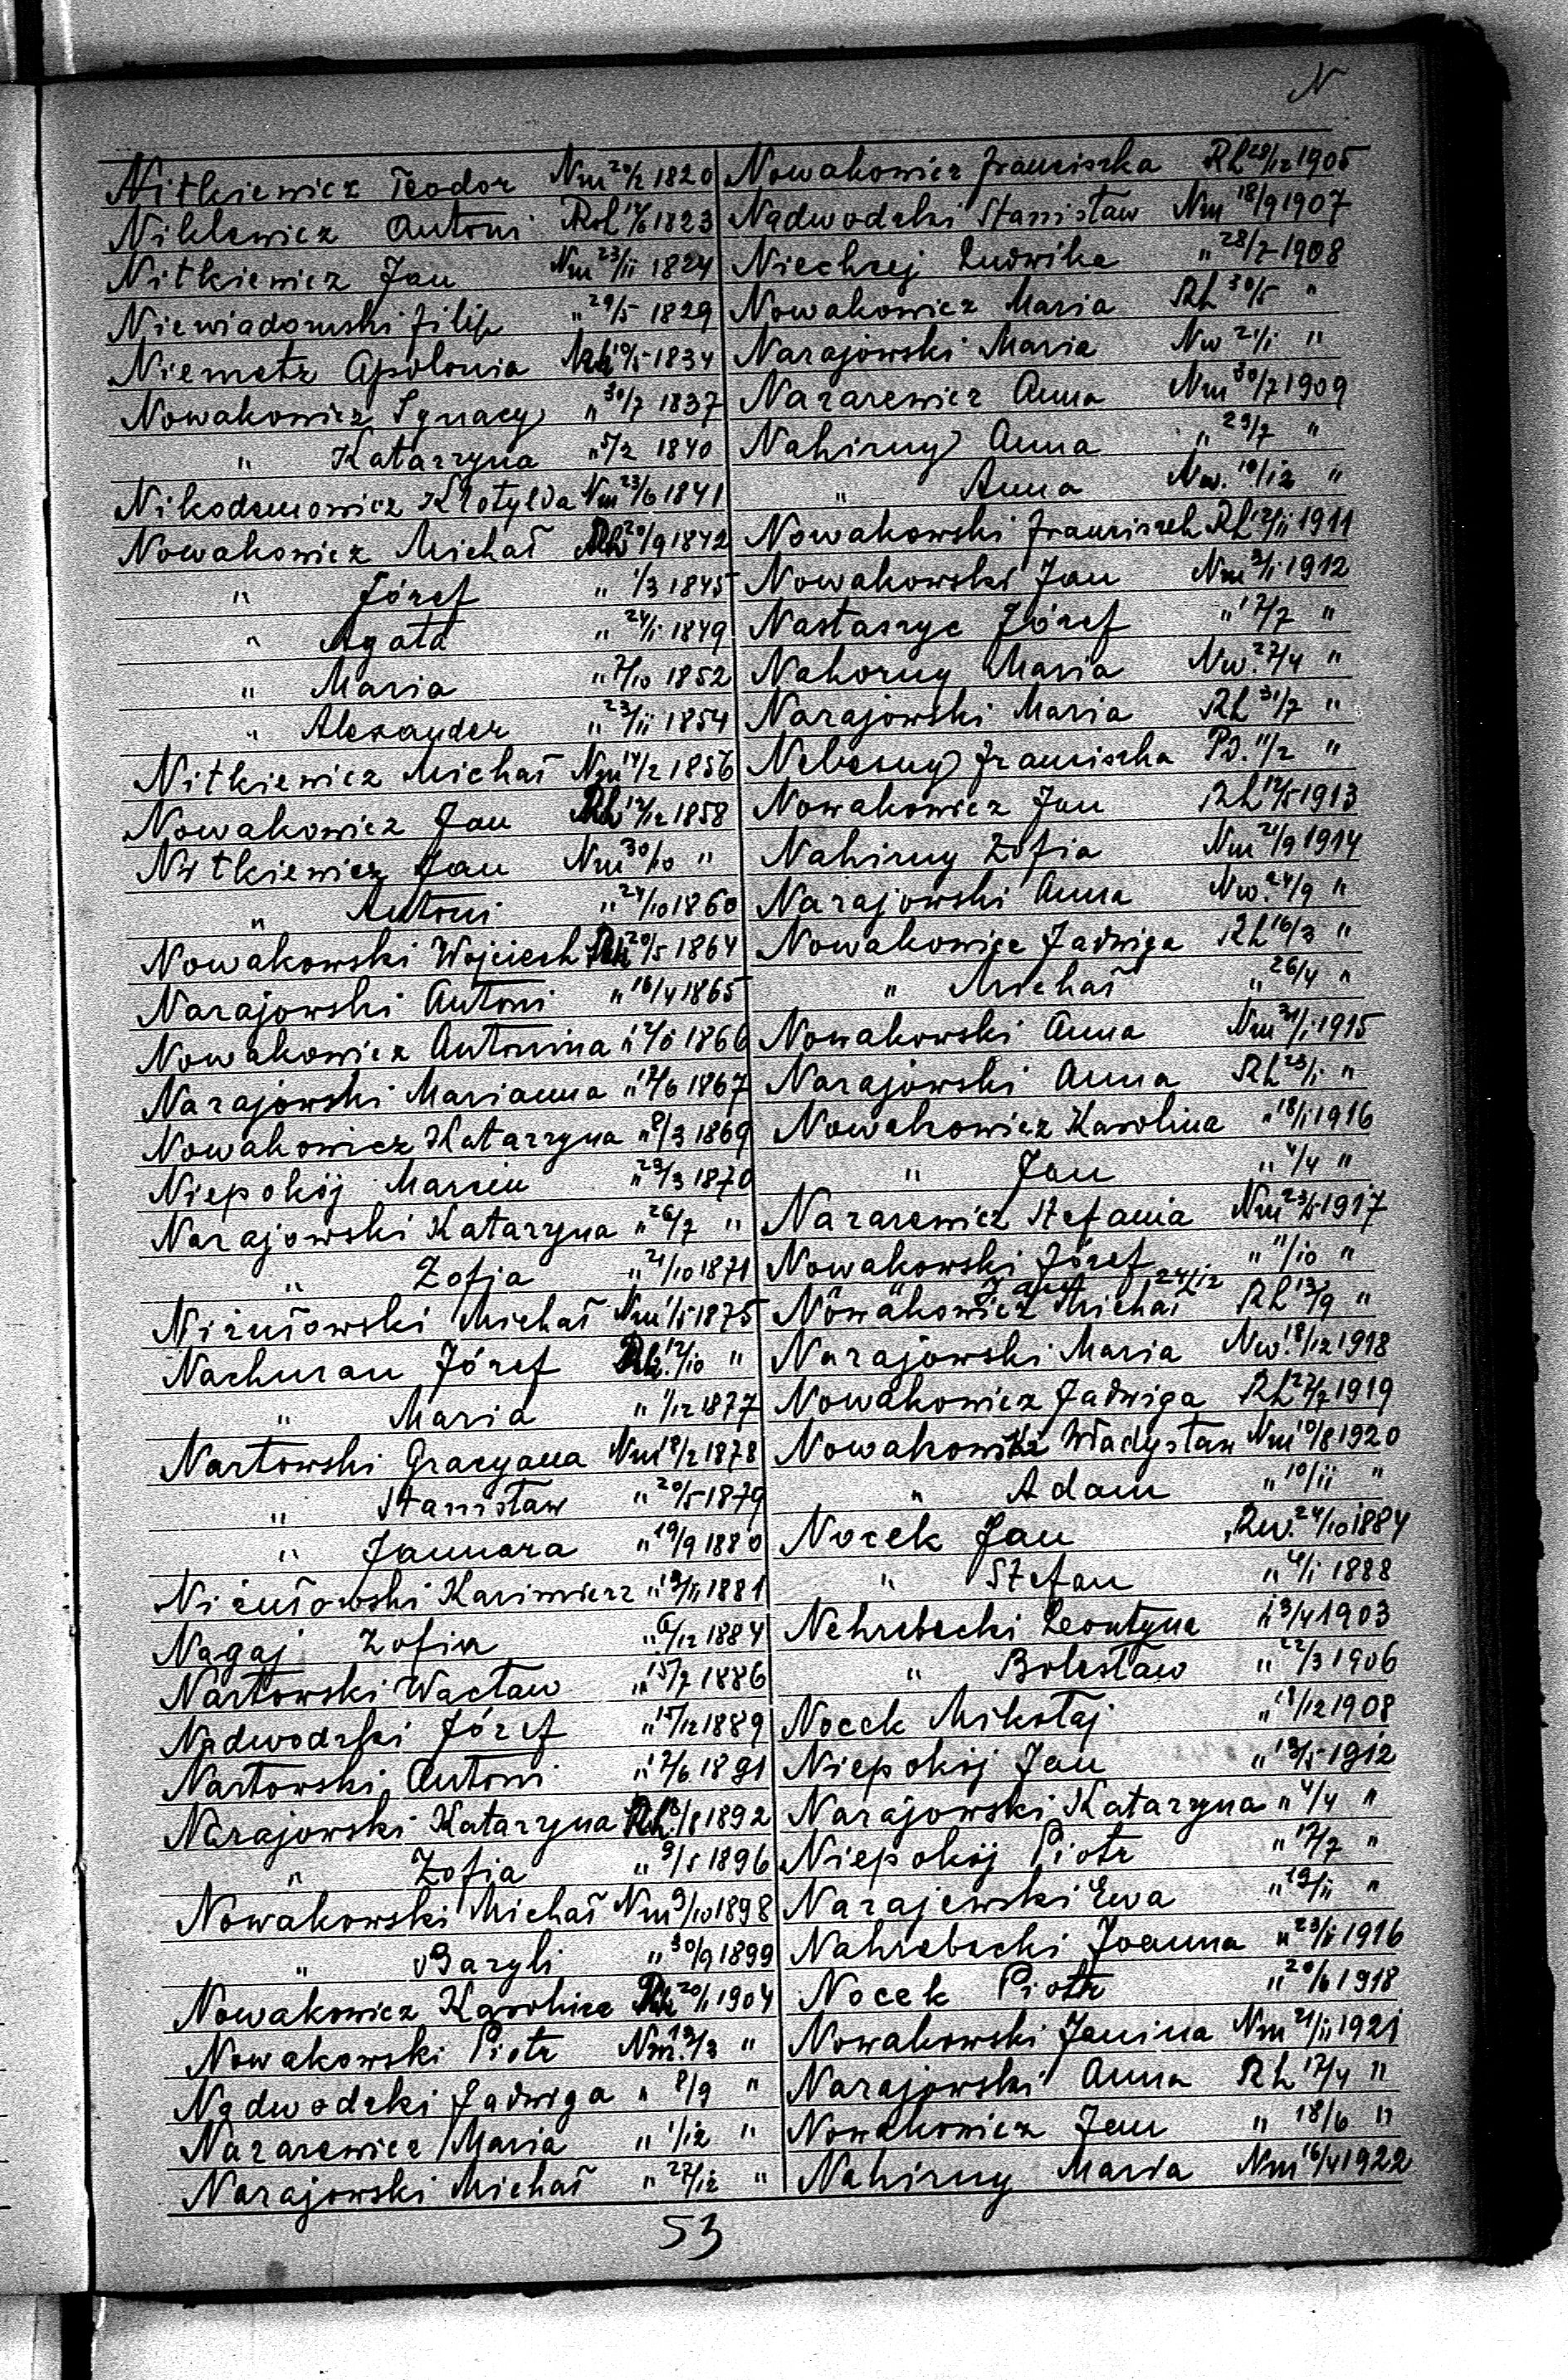 N
Nitkiewicz Teodor Nm 20/2 1820
Niklewicz Antoni Roh 17/6 1823
Nitkiewicz Jan Nm 23/11 1824
Niewiadomski Filip " 29/5 1829
Niemetz Apolonia Rh 10/5 1834
Nowakowicz Ignacy " 30/7 1837
" Katarzyna " 5/2 1840
Nikodemowicz Klotylda Nm 23/6 1841
Nowakowicz Michał Rh 20/9 1842
" Józef " 1/3 1845
" Agata " 24/1 1849
" Maria " 7/10 1852
" Alexander " 23/11 1854
Nitkiewicz Michał Nm 14/2 1856
Nowakowicz Jan Rh 12/12 1858
Nitkiewicz Jan Nm 30/10 "
" Antoni " 24/10 1860
Nowakowski Wojciech Rh 20/5 1864
Narajowski Antoni " 16/4 1865
Nowakowicz Antonina " 1866
Narajowski Marianna " 12/6 1867
Nowakowicz Katarzyna " 8/3 1869
Niepokój Marcin " 23/3 1870
Narajowski Katarzyna " 26/7 "
" Zofia " 21/10 1871
Niżułowski Michał Nm 1/5 1875
Nachuran Józef Rh. 12/10 "
" Maria " 1/12 1877
Nartowski Gracyana Nm 18/2 1878
" Stanisław " 20/5 1879
" Januara " 19/9 1880
Niżułowski Kazimierz " 19/11 1881
Nagaj Zofia " 6/12 1884
Nartowski Wacław " 15/7 1886
Nadwodzki Józef " 15/12 1889
Nartowski Antoni " 12/6 1891
Narajowski Katarzyna Rh. 3/8 1892
" Zofia " 9/5 1896
Nowakowski Michał Nm 9/10 1898
" Bazyli " 30/9 1899
Nowakowicz Karolina Rh 20/1 1904
Nowakowski Piotr Nm. 19/3 "
Nadwodzki Jadwiga " 8/9 "
Nazarewicz Maria " 1/12 "
Narajowski Michał " 27/12 "
Nowakowicz Franciszka Rh 28/12 1905
Nadwodzki Stanisław Nm 18/9 1907
Niechzej Ludwika " 28/7 1908
Nowakowicz Maria Rh 30/5 "
Narajowski Maria Nw 21/1 "
Nazarewicz Anna Nm 30/7 1909
Nahirny Anna " 29/7 "
" Anna Nw. 10/12 "
Nowakowski Franciszek Rh 12/11 1911
Nowakowski Jan Nm 3/1 1912
Nastaszyc Józef " 17/7 "
Nahorny Maria Nw. 27/4 "
Narajowski Maria Rh 31/7 "
Nebesny Franciszka Pd. 11/2 "
Nowakowicz Jan Rh 12/5 1913
Nahirny Zofia Nm 21/9 1914
Narajowski Anna Nw. 24/9 "
Nowakowicz Jadwiga Rh 16/3 "
" Michał " 26/4 "
Nowakowski Anna Nm 31/1 1915
Narajowski Anna Rh 23/1 "
Nowakowicz Karolina " 18/1 1916
" Jan " 4/4 "
Nazarewicz Stefania Nm 23/5 1917
Nowakowski Józef " 11/10 "
" Jan 24/12
Nowakowicz Michał Rh 13/9 "
Narajowski Maria Nw. 18/12 1918
Nowakowicz Jadwiga Rh 27/7 1919
Nowakowski Władysław Nm 10/8 1920
" Adam " 10/11 "
Nocek Jan Rw. 24/10 1884
" Stefan " 4/1 1888
Nehrebecki Leontyna " 13/4 1903
" Bolesław " 22/3 1906
Nocek Mikołaj " 18/12 1908
Niepokój Jan " 13/5 1912
Narajowski Katarzyna " 4/4 "
Niepokój Piotr " 17/7 "
Narajewski Ewa " 19/11 "
Nahrebecki Joanna " 23/8 1916
Nocek Piotr " 20/6 1918
Nowakowski Janina Nm 21/11 1921
Narajowski Anna Rh 17/4 "
Nowakowicz Jan " 18/6 "
Nahirny Maria Nm 16/4 1922
53